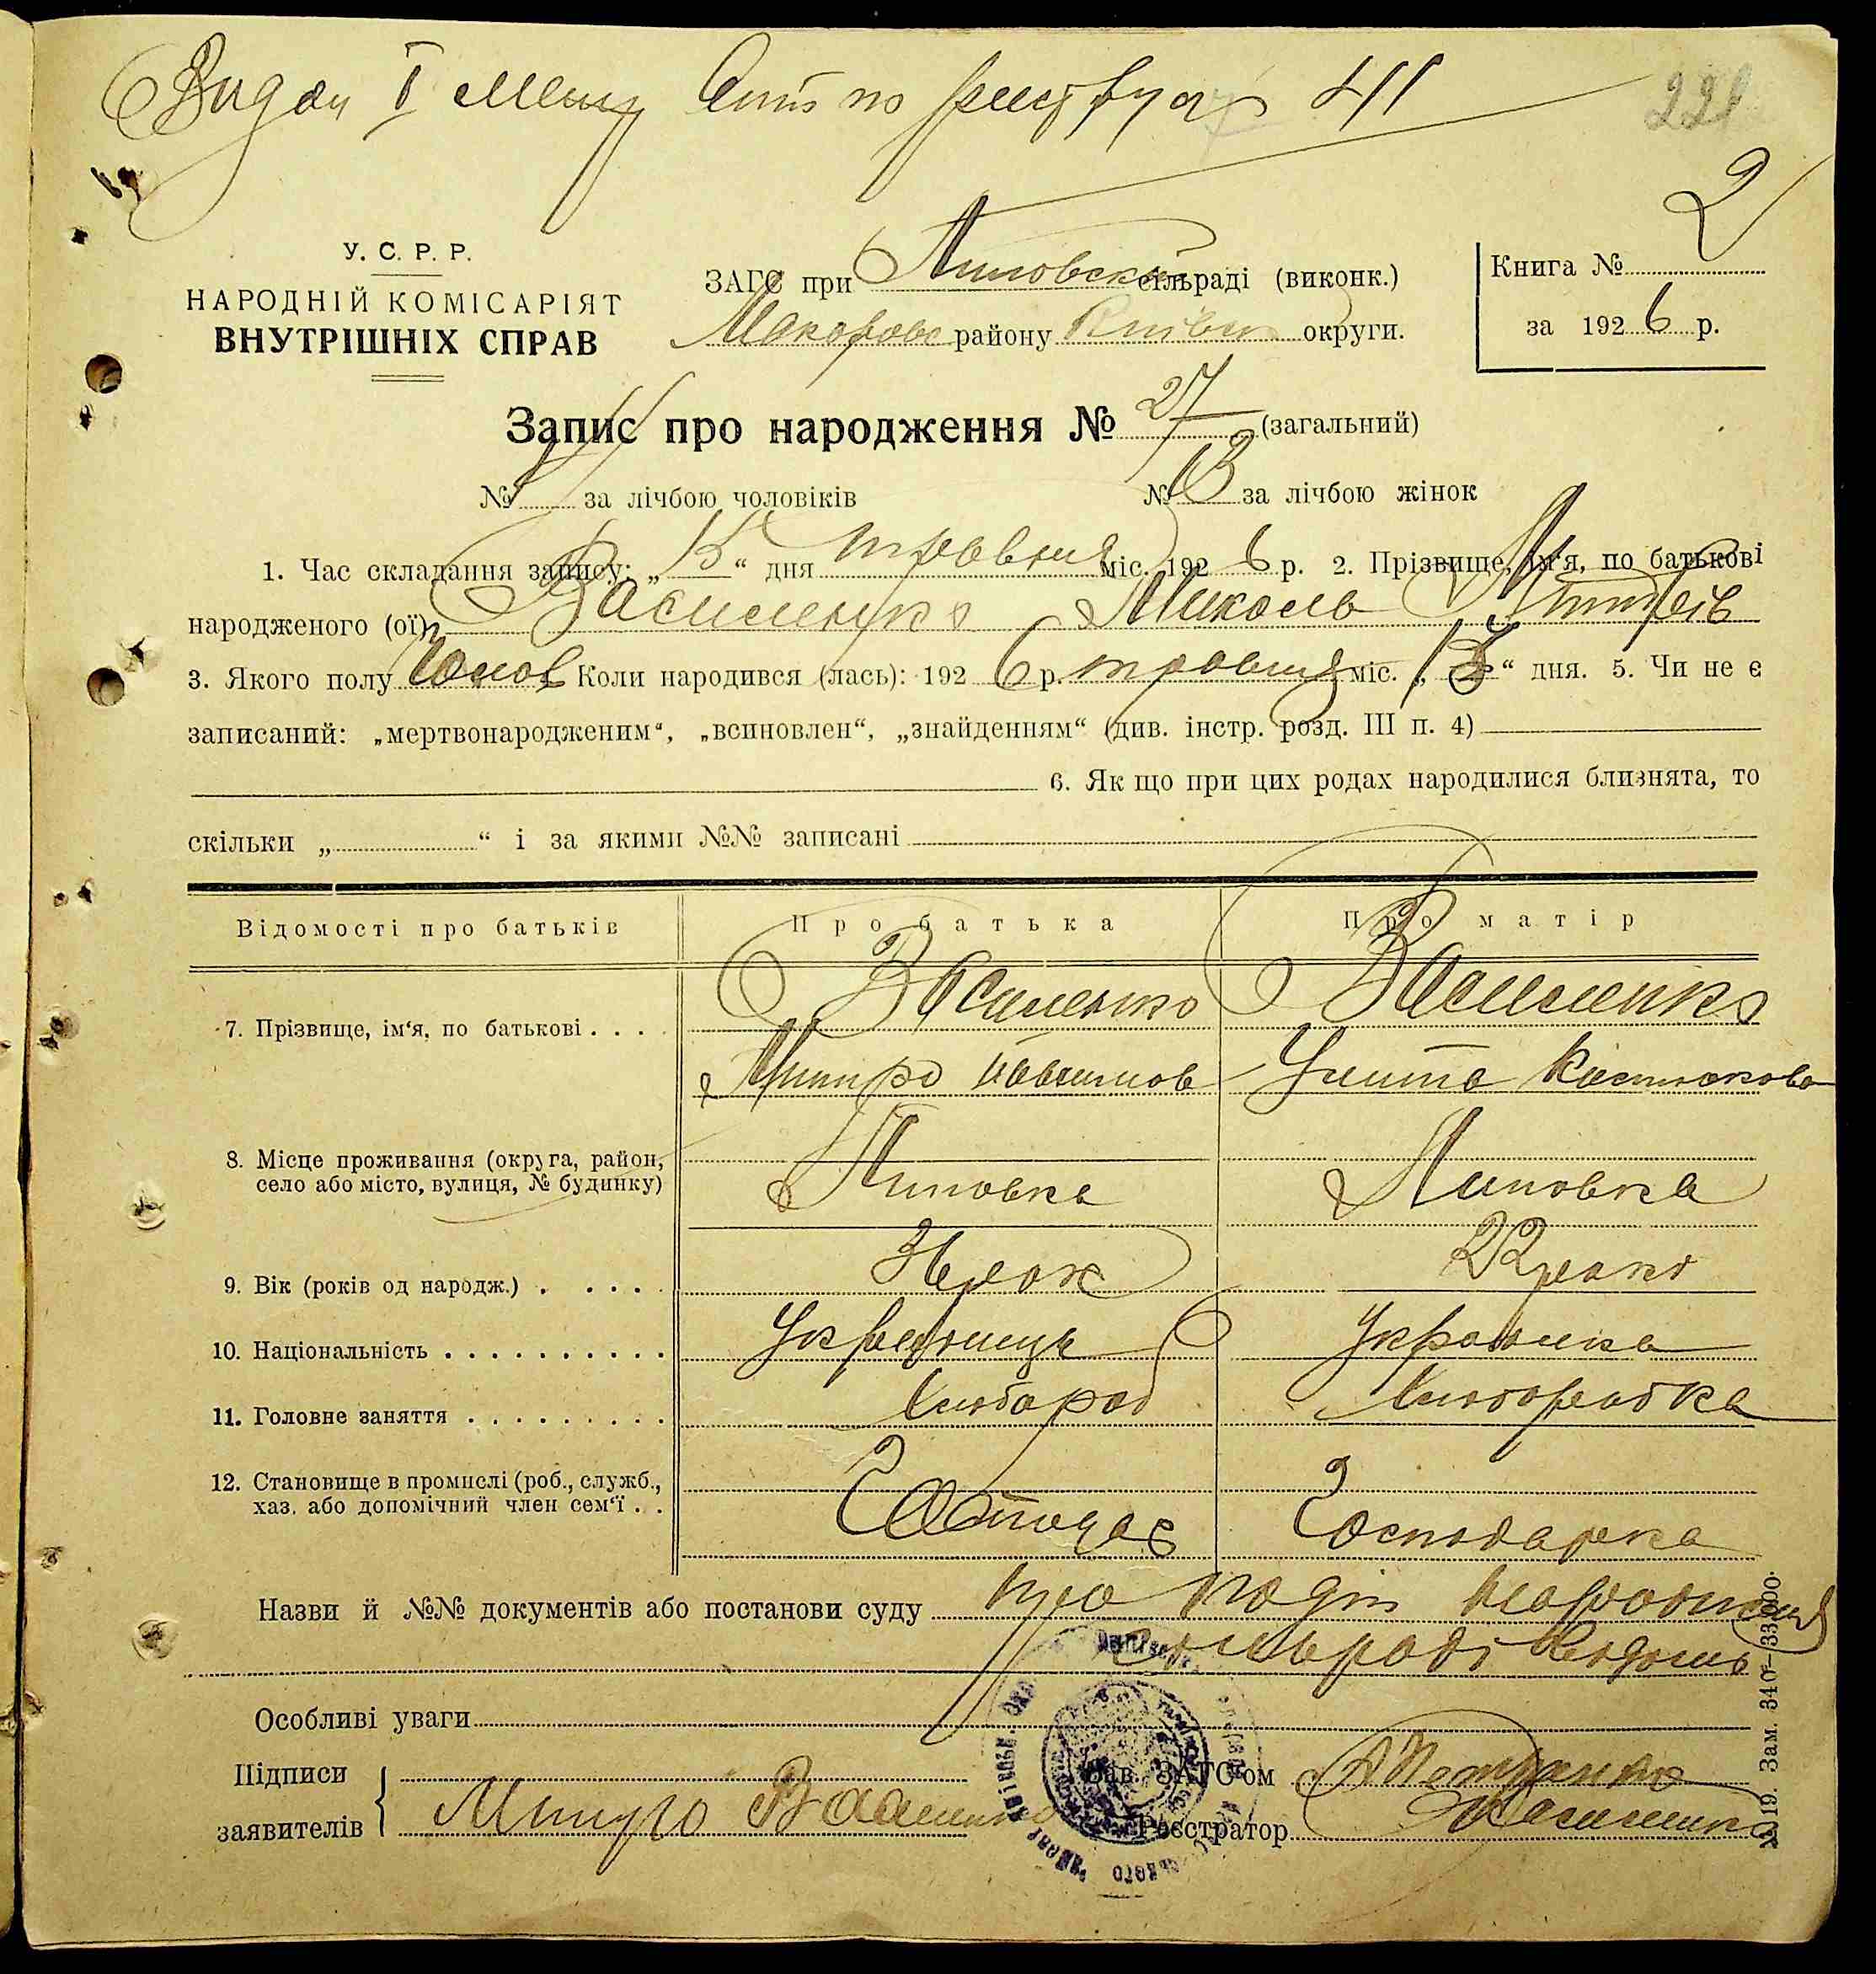 221
2
У. С. Р. Р.
НАРОДНІЙ КОМІСАРІЯТ
ВНУТРІШНІХ СПРАВ
ЗАГС при Липовській сільраді (виконк.)
Макаров району Київськ округи.
Книга №
за 1926 р.
Запис про народження № 27 (загальний)
№ за лічбою чоловіків
№ 13 за лічбою жінок
1. Час складання запису: „15“ дня травня міс. 1926 р. 2. Прізвище, ім'я, по батькові
народженого (ої) Василенко Микола Митрів
3. Якого полу Чолов Коли народився (лась): 1926 р. травня міс. „13“ дня. 5. Чи не є
записаний: „мертвонародженим“, „всиновлен“, „знайденням“ (див. інстр. розд. III п. 4)
6. Як що при цих родах народилися близнята, то
скільки „ “ і за якими №№ записані
Відомості про батьків Про батька Про матір
7. Прізвище, ім'я, по батькові . . . . Василенко Василенко
Митро Улита
8. Місце проживання (округа, район,
село або місто, вулиця, № будинку) Липовка Липовка
9. Вік (років од народж.) . . . . . рок 22 роки
10. Національність . . . . . . . . . . Українець Українка
11. Головне заняття . . . . . . . . . Хлібороб Хлоборобка
12. Становище в промислі (роб., служб.,
хаз. або допомічний член сем'ї . . Господарка
Назви й №№ документів або постанови суду про народження
сільради
Особливі уваги
Підписи
заявителів Митро Василенко
Зав. ЗАГС'ом
Реєстратор Василенко
№ 19. Зам. 340—33000.